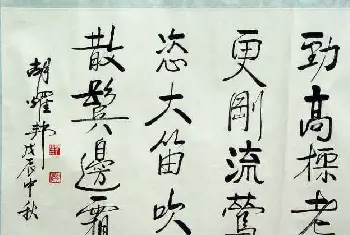 勁高標老
更剛流鶯
恣大笛吹
散鬢邊霜
胡耀邦戊辰中秋